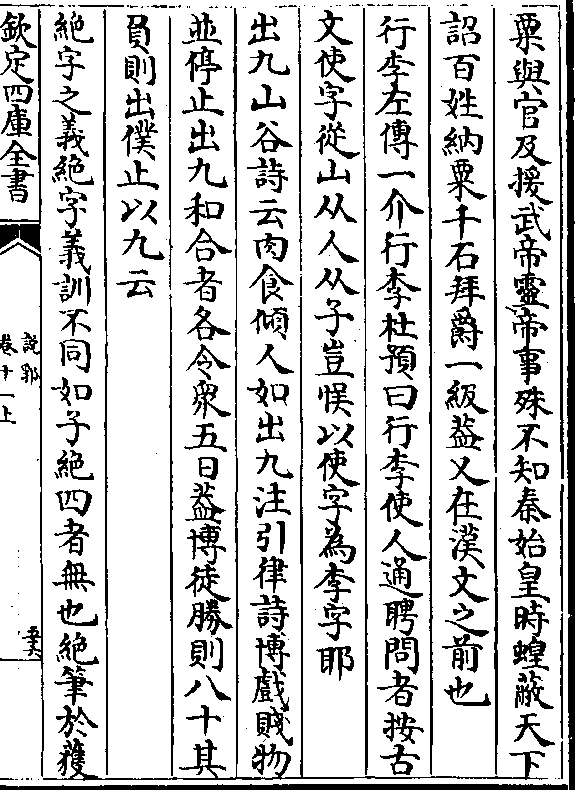 粟與官及援武帝靈帝事殊不知秦始皇時蝗蔽天下
詔百姓納粟千石拜爵一級葢又在漢文之前也
行李左傳一介行李杜預曰行李使人通聘問者按古
文使字從山从人从子豈悞以使字為李字耶
出九山谷詩云肉食傾人如出九注引律詩博戲賊物
並停止出九和合者各令衆五日葢博徒勝則八十其
負則出僕止以九云
絶字之義絶字義訓不同如子絶四者無也絶筆於獲
欽定四庫全書
説郛
卷十一上